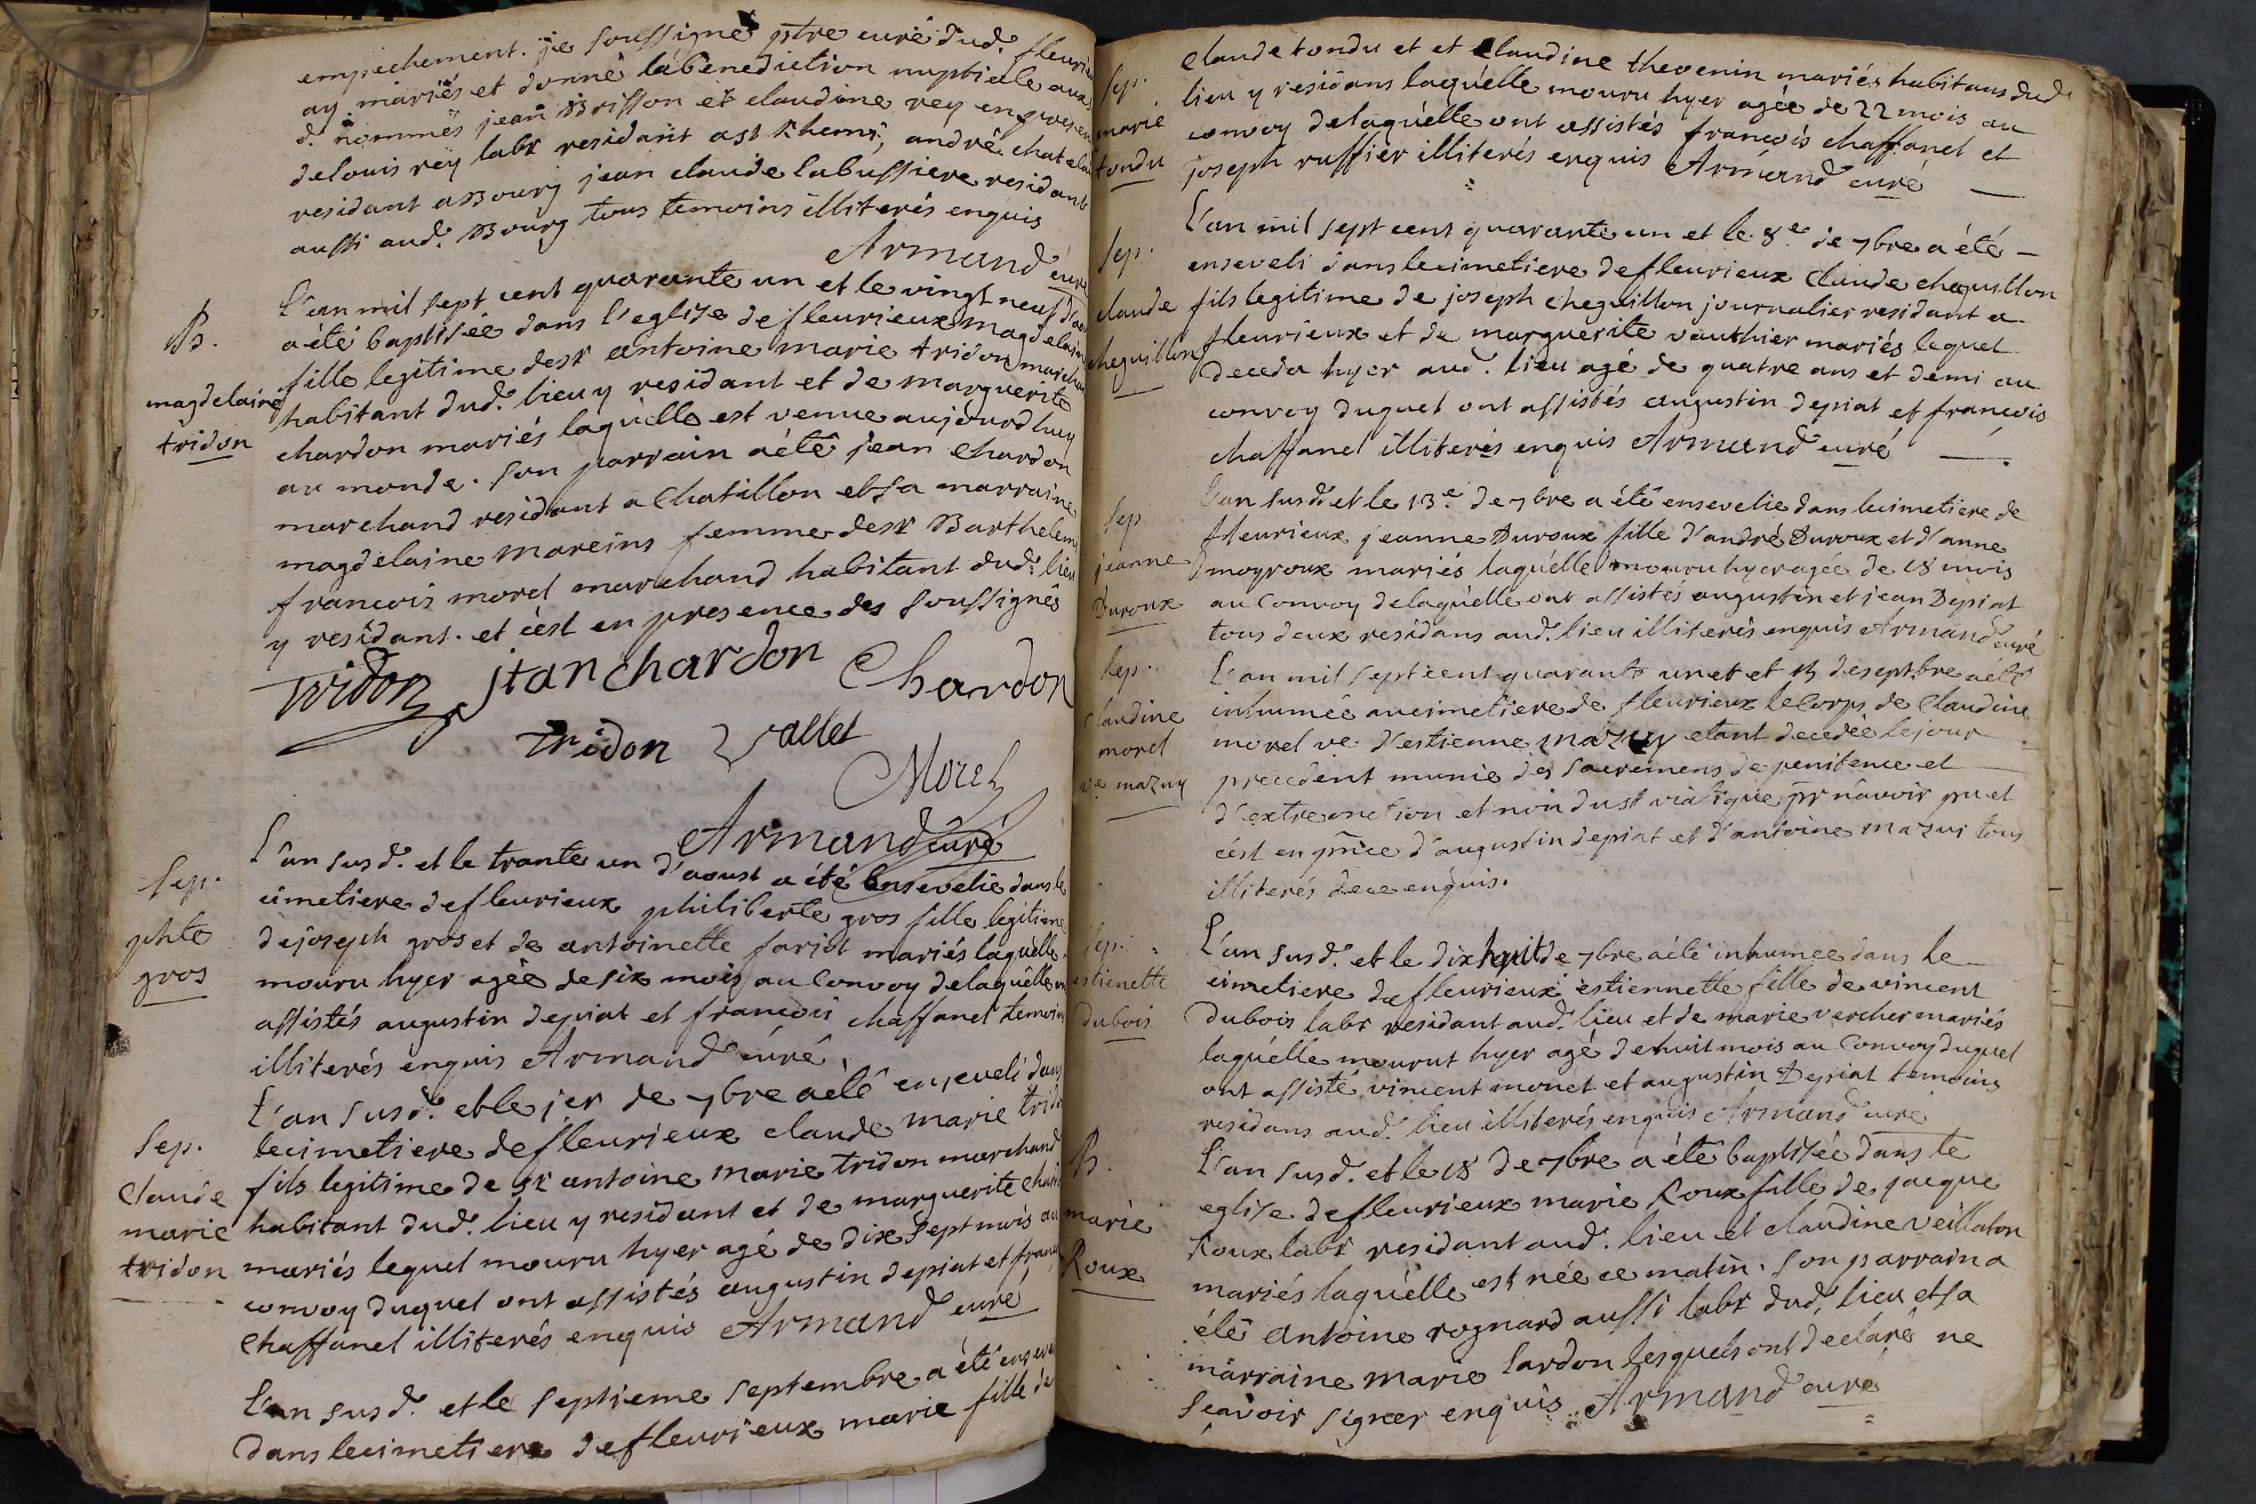 empechement. je soussigné ptre curé dud. fleurieux
ay mariés et donné la benediction nuptiale aux
d. nommés jean Brisson et claudine rey en presence
de louis rey labr residant a st Rhemi, andré chatelain
residant a Bourg jean claude labussiere residant
aussi aud. Bourg tous temoins illiterés enquis
Armand curé
B.
magdelaine
tridon
L'an mil sept cent quarante un et le vingt neuf d'aout
a été baptisée dans l'eglise de fleurieux magdelaine
fille legitime de sr antoine marie tridon marchand
habitant dud. lieu y residant et de marguerite
chardon mariés laquelle est venue aujourd huy
au monde. son parrain a été jean chardon
marchand residant a Chatillon et sa marraine
magdelaine mareins femme de sr Barthelemi
francois morel marchand habitant dud. lieu
y residant. et c'est en presence des soussignés
tridon jean chardon Chardon
tridon Vallet
Morel
Armand curé
Sep.
phte
gros
L'an susd. et le trante un d'aoust a été ensevelie dans le
cimetiere de fleurieux philiberte gros fille legitime
de joseph gros et de antoinette farjot mariés laquelle
mouru hyer agée de six mois au Convoy de laquelle ont
assistés augustin depiat et francois chaffanel temoins
illiterés enquis Armand curé.
Sep.
Claude
marie
tridon
L'an susd. et le jer de 7bre a été enseveli dans
le cimetiere de fleurieux claude marie tridon
fils legitime de sr antoine marie tridon marchand
habitant dud. lieu y residant et de marguerite chardon
mariés lequel mouru hyer agé de dix sept mois au
convoy duquel ont assistés augustin depiat et francois
Chaffanel illiterés enquis Armand curé
L'an susd. et le septieme septembre a été ensevelie
dans le cimetiere de fleurieux marie fille de
Sep.
marie
tondu
Claude tondu et et Claudine thevenin mariés habitans dud.
lieu y residans laquelle mouru hyer agée de 22 mois au
convoy de laquelle ont assistés francois chaffanel et
joseph ruffier illiterés enquis Armand curé
Sep.
claude
cheguillon
L'an mil sept cent quarante un et le 8e de 7bre a été
enseveli dans le cimetiere de fleurieux Claude cheguillon
fils legitime de joseph cheguillon journalier residant a
fleurieux et de marguerite vauthier mariés lequel
deceda hyer aud. lieu agé de quatre ans et demi au
convoy duquel ont assistés augustin depiat et francois
chaffanel illiterés enquis Armand curé
Sep
jeanne
Duroux
L'an susd. et le 13e de 7bre a été ensevelie dans le cimetiere de
fleurieux jeanne Duroux fille d'andré Duroux et d'anne
moyroux mariés laquelle mouru hyer agée de 18 mois
au Convoy de laquelle ont assistés augustin et jean Depiat
tous deux residans aud. lieu illiterés enquis Armand curé
Sep.
Claudine
morel
ve mazuy
L'an mil sept cent quarante un et et 15 de septbre a été
inhumée au cimetiere de fleurieux le Corps de Claudine
morel ve d'estienne mazuy etant decedée le jour
precedent munie des sacremens de penitence et
d'extreonction et non du st viatique pr n'avoir pu et
c'est en pnce d'augustin depiat et d'antoine mazui tous
illiterés de ce enquis.
Sep.
estienette
Dubois
L'an susd. et le dix huit de 7bre a été inhumée dans le
cimetiere de fleurieux estiennette fille de vincent
Dubois labr residant aud. lieu et de marie vercher mariés
laquelle mourut hyer agé de huit mois au Convoy duquel
ont assisté vincent monet et augustin Depiat temoins
residans aud. lieu illiterés enquis Armand curé
B.
marie
Roux
L'an susd. et le 18 de 7bre a été baptisée dans le
eglise de fleurieux marie Roux fille de jacque
Roux labr residant aud. lieu et claudine veillaton
mariés laquelle est née ce matin. son parrain a
été antoine rognard aussi labr dud. lieu et sa
marraine marie sardon lesquels ont declaré ne
scavoir signer enquis. Armand curé